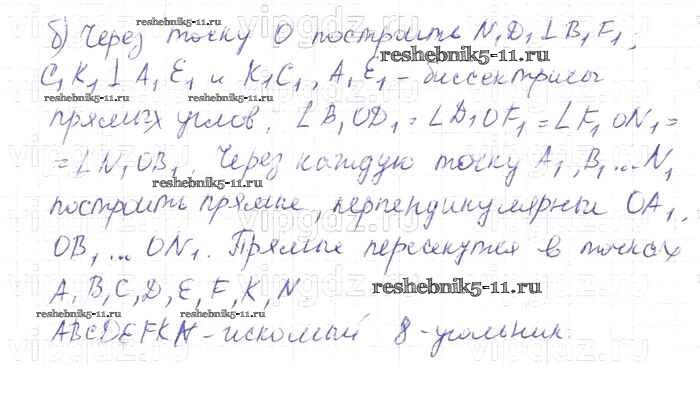 б) Через точку O построить N₁D₁ ⊥ B₁F₁;
C₁K₁ ⊥ A₁E₁ и K₁C₁, A₁E₁ - биссектрисы
прямых углов, ∠B₁OD₁ = ∠D₁OF₁ = ∠F₁ON₁ =
= ∠N₁OB₁. Через каждую точку A₁, B₁...N₁
построить прямые, перпендикулярные OA₁,
OB₁ ... ON₁. Прямые пересекутся в точках
A, B, C, D, E, F, K, N
ABCDEFKN - искомый 8-угольник.
reshebnik5-11.ru
reshebnik5-11.ru
reshebnik5-11.ru
reshebnik5-11.ru
reshebnik5-11.ru
reshebnik5-11.ru
reshebnik5-11.ru
reshebnik5-11.ru